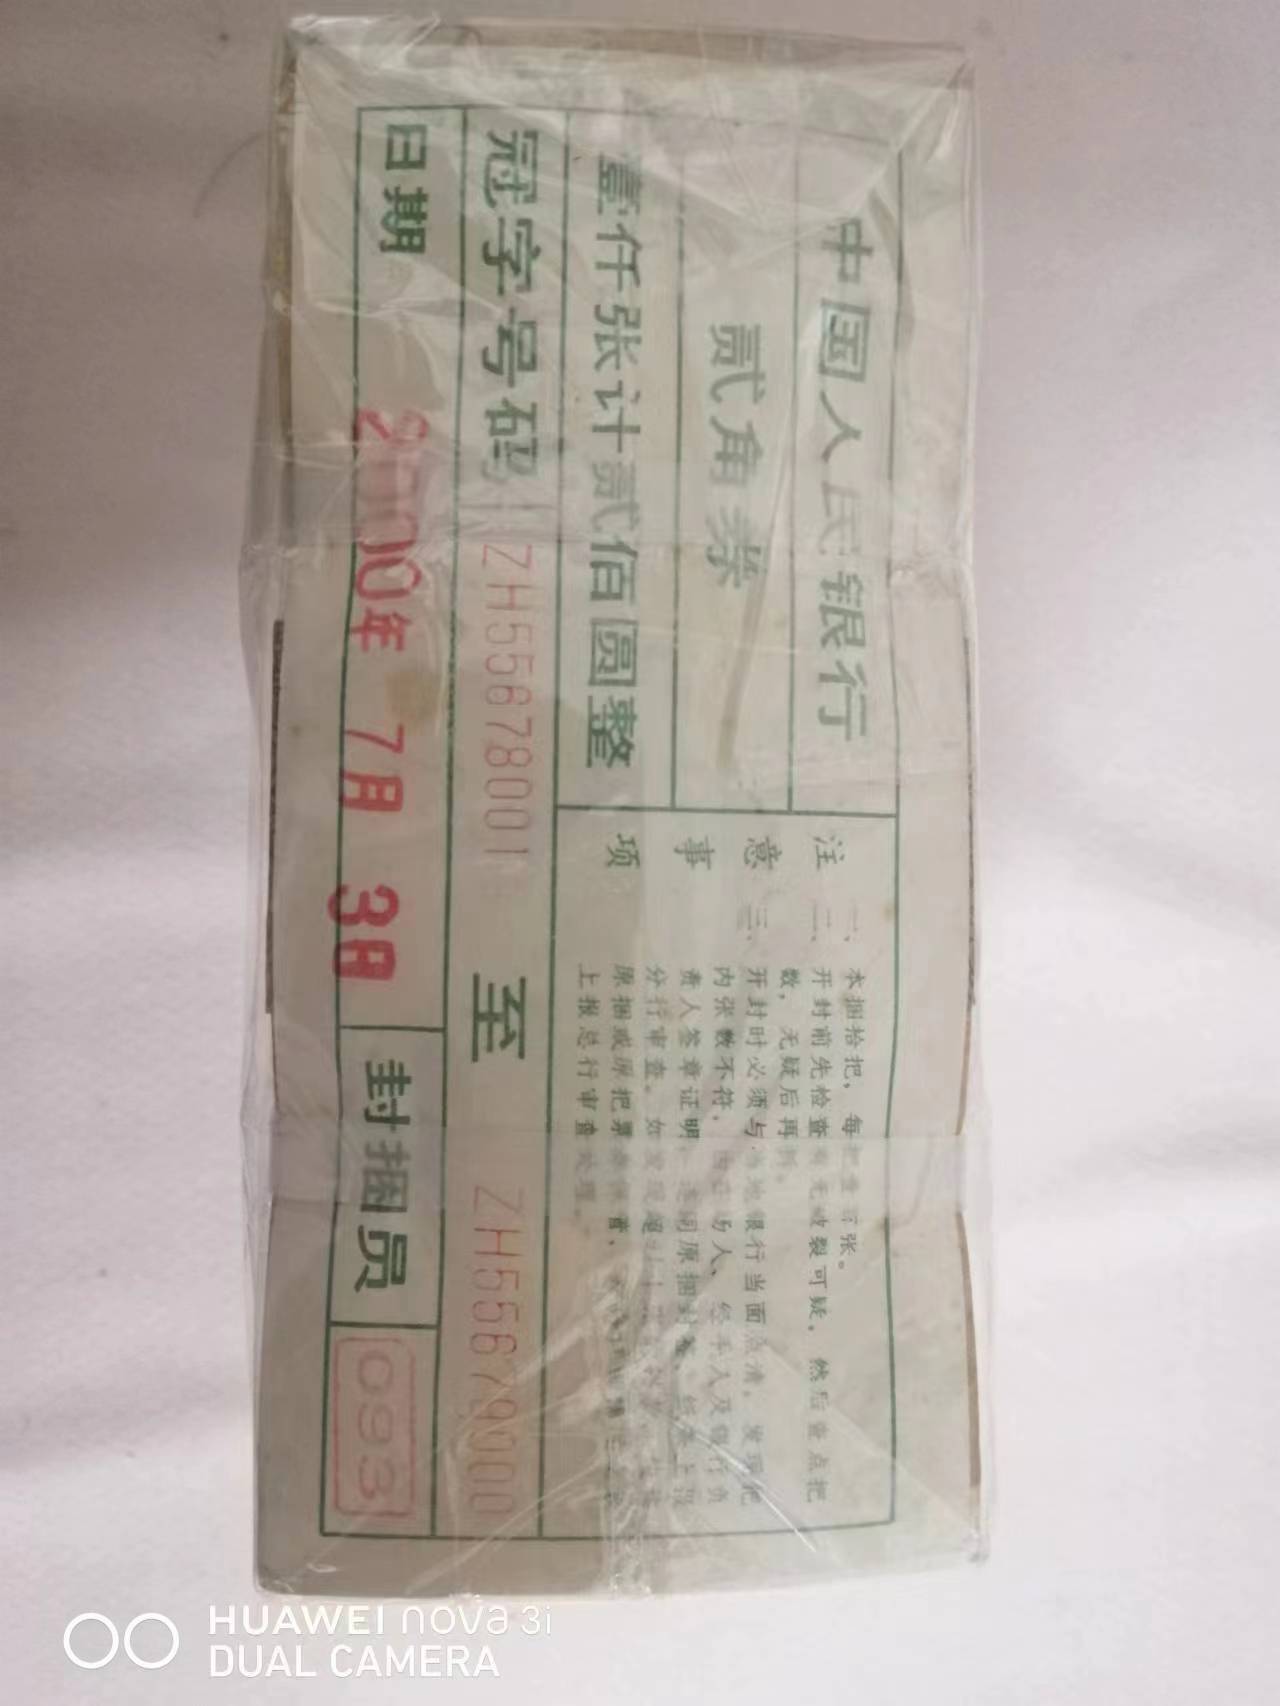 中国人民银行
贰角券
壹仟张计贰佰圆整
注意事项
一、本捆拾把，每把壹百张。
二、开封前先检查有无破裂可疑，然后查点把
数，无疑后再拆。
三、开封时必须与当地银行当面点清，发现把
内张数不符，由在场人、经手人及银行负
责人签章证明，连同原捆封签、纸条上报
分行审查。如发现
原捆或原把票券保管，
上报总行审查处理。
冠字号码 ZH55678001 至 ZH55679000
日期 2000年7月3日 封捆员 093
HUAWEI nova 3i
DUAL CAMERA